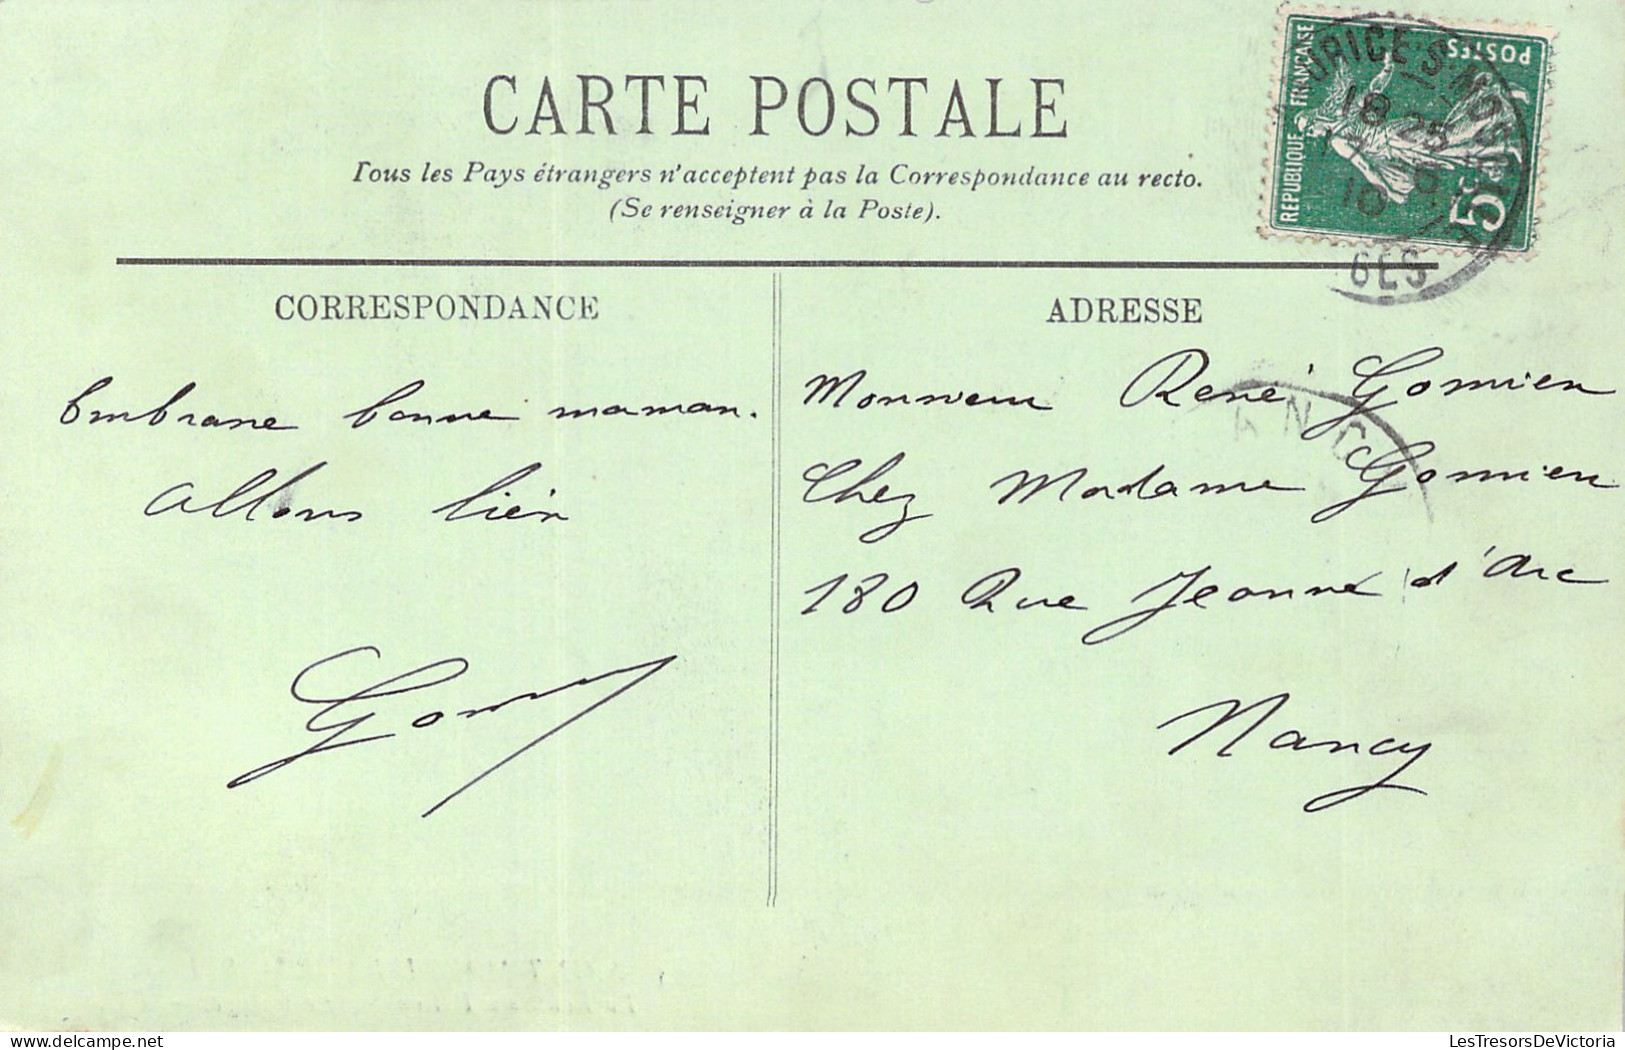 CARTE POSTALE
Tous les Pays étrangers n'acceptent pas la Correspondance au recto.
(Se renseigner à la Poste).
REPUBLIQUE FRANÇAISE
POSTES
5c
18 25
10
GES
CORRESPONDANCE
Embrasse bonne maman.
Allons bien
ADRESSE
Monsieur René Gomien
Chez Madame Gomien
180 Rue Jeanne d'Arc
Nancy
LesTresorsDeVictoria